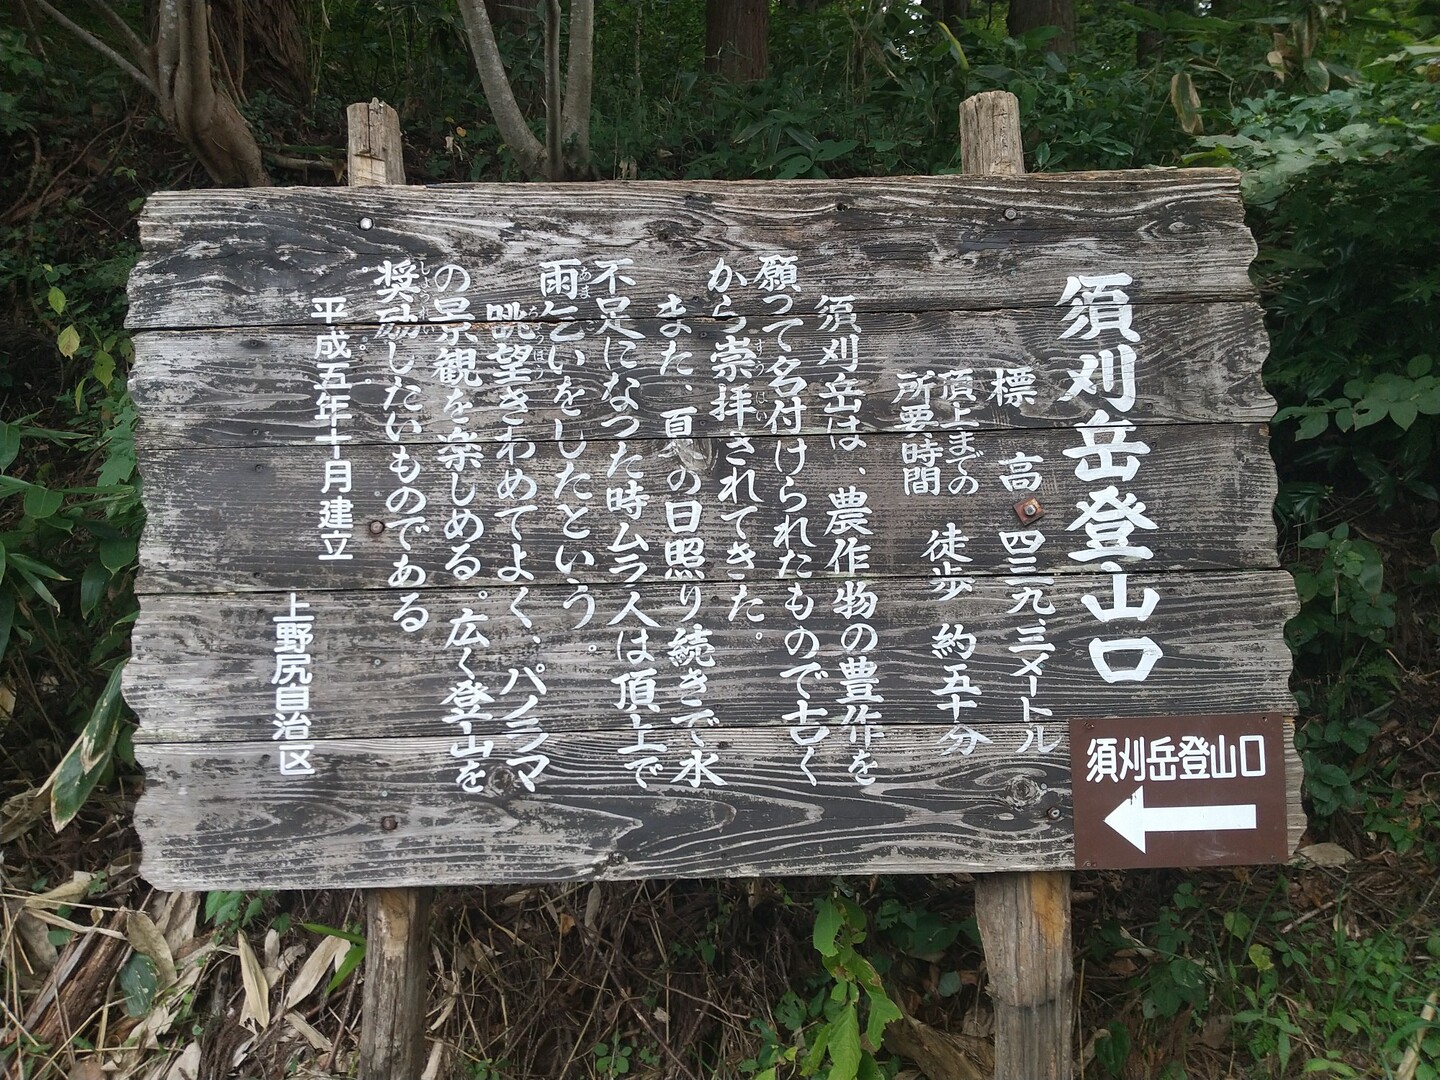 須刈岳登山口
標 高 四三九、三メートル
頂上までの
所要時間 徒歩 約五十分
須刈岳は、農作物の豊作を
願って名付けられたもので古く
から崇拝されてきた。
また、夏の日照り続きで水
不足になった時ムラ人は頂上で
雨乞いをしたという。
眺望きわめてよく、パノラマ
の景観を楽しめる。広く登山を
奨励したいものである。
平成五年十月建立
上野尻自治区
須刈岳登山口